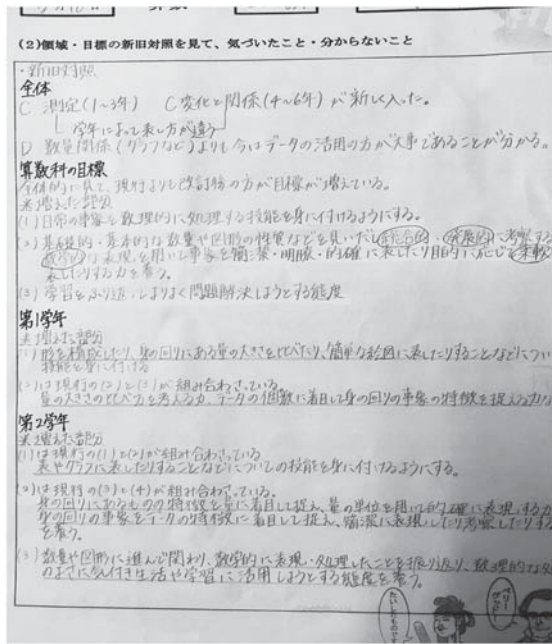 算数
(2)領域・目標の新旧対照を見て、気づいたこと・分からないこと
・新旧対照
全体
C 測定(1～3年) C変化と関係(4～6年)が新しく入った。
学年によって表し方が違う
D 数量関係(グラフなど)よりも今はデータの活用の方が大事であることが分かる。
算数科の目標
全体的に見て、現行よりも改訂後の方が目標が増えている。
※増えた部分
(1)日常の事象を数理的に処理する技能を身に付けるようにする。
(2)基礎的・基本的な数量や図形の性質などを見いだし統合的・発展的に考察する
な表現を用いて事象を簡潔・明瞭・的確に表したり目的に応じて柔軟
表したりする力を養う。
(3)学習をふり返ってよりよく問題解決しようとする態度
第1学年
※増えた部分
(1)形を構成したり、身の回りにある量の大きさを比べたり、簡単な絵図に表したりすることなどについ
技能を身に付ける
(2)は現行の(2)と(3)が組み合わさっている
量の大きさの比べ方を考える力、データの個数に着目して身の回りの事象の特徴を捉える力な
第2学年
※増えた部分
(1)は現行の(1)と(2)が組み合わさっている
表やグラフに表したりすることなどについての技能を身に付けるようにする。
(2)は現行の(3)と(4)が組み合わさっている。
身の回りにあるものの特徴を量に着目して捉え、量の単位を用いて的確に表現する力
身の回りの事象をデータの特徴に着目して捉え、簡潔に表現したり考察したりする
を養う。
(3)数量や図形に進んで関わり、数学的に表現・処理したことを振り返り、数理的な処
のよさに気付き生活や学習に活用しようとする態度を養う。
ベリーグッド